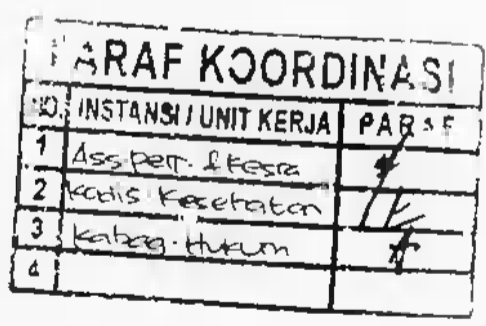 PARAF KOORDINASI
NO. INSTANSI / UNIT KERJA PARAF
1 Ass. pem. & kesra
2 Kadis Kesehatan
3 Kabag. Hukum
4